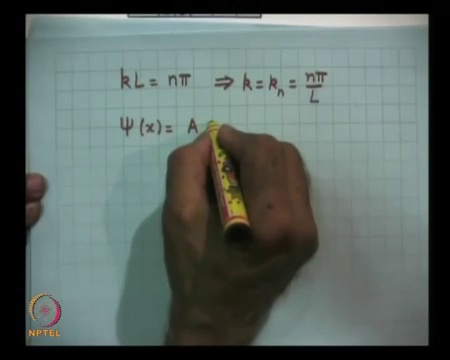 kL = nπ ⇒ k = kₙ = nπ/L
Ψ(x) = A
NPTEL